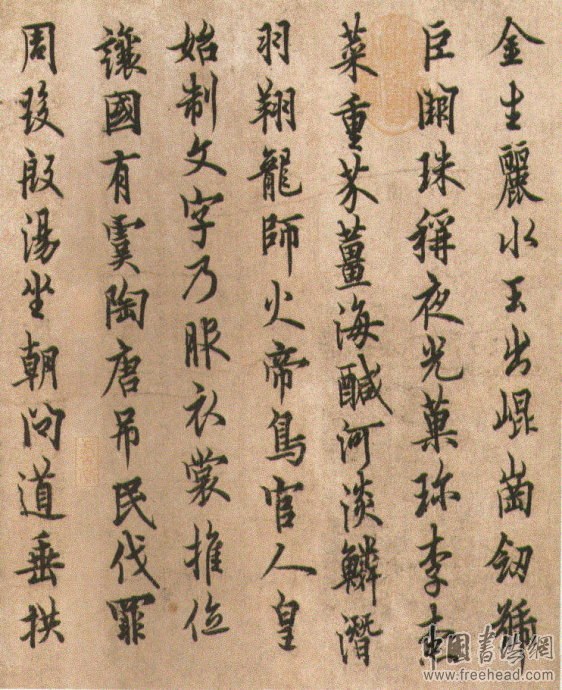 金生麗水玉出崐崗釼號
巨闕珠稱夜光菓珍李柰
菜重芥薑海鹹河淡鱗潛
羽翔龍師火帝鳥官人皇
始制文字乃服衣裳推位
讓國有虞陶唐吊民伐罪
周發殷湯坐朝問道垂拱
中国書法網
www.freehead.com